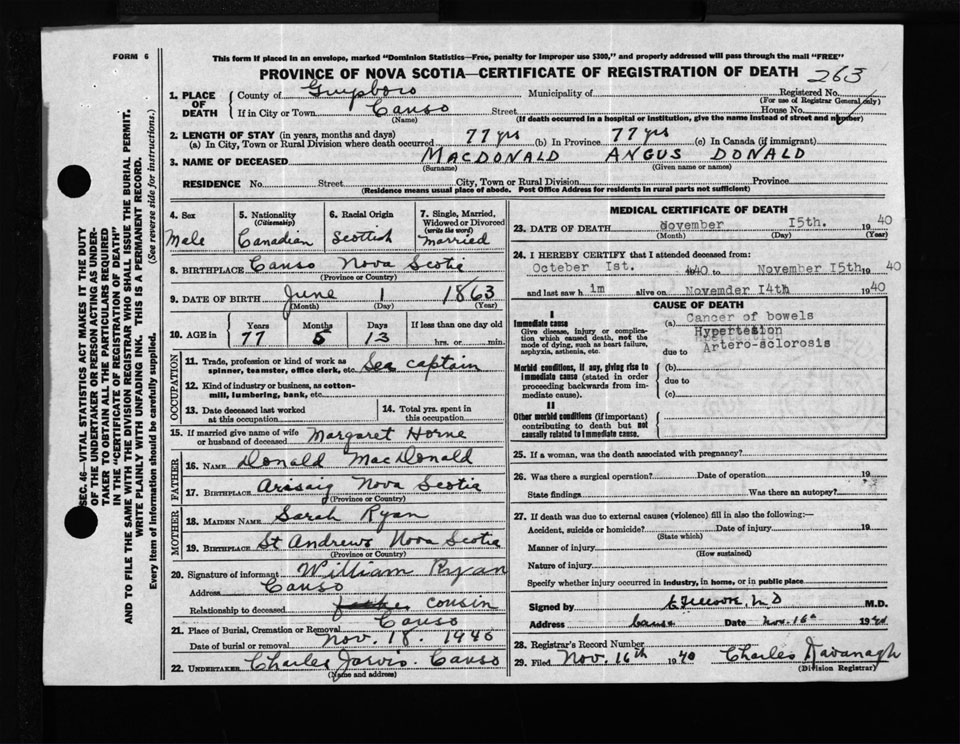 FORM 6
This form if placed in an envelope, marked "Dominion Statistics—Free, penalty for improper use $300," and properly addressed will pass through the mail "FREE"
PROVINCE OF NOVA SCOTIA—CERTIFICATE OF REGISTRATION OF DEATH 263
SEC. 46—VITAL STATISTICS ACT MAKES IT THE DUTY
OF THE UNDERTAKER OR PERSON ACTING AS UNDER-
TAKER TO OBTAIN ALL THE PARTICULARS REQUIRED
IN THE "CERTIFICATE OF REGISTRATION OF DEATH"
AND TO FILE THE SAME WITH THE DIVISION REGISTRAR WHO SHALL ISSUE THE BURIAL PERMIT.
WRITE PLAINLY WITH UNFADING INK. THIS IS A PERMANENT RECORD.
Every item of information should be carefully supplied. (See reverse side for instructions.)
1. PLACE OF DEATH
County of Guysboro Municipality of Registered No.
(For use of Registrar General only)
If in City or Town Canso Street House No.
(Name) (If death occurred in a hospital or institution, give the name instead of street and number)
2. LENGTH OF STAY (in years, months and days)
(a) In City, Town or Rural Division where death occurred 77 yrs (b) In Province 77 yrs (c) In Canada (if immigrant)
3. NAME OF DECEASED MACDONALD ANGUS DONALD
(Surname) (Given name or names)
RESIDENCE No. Street City, Town or Rural Division Province
(Residence means usual place of abode. Post Office Address for residents in rural parts not sufficient)
4. Sex
Male
5. Nationality
(Citizenship)
Canadian
6. Racial Origin
Scottish
7. Single, Married,
Widowed or Divorced
(write the word)
Married
8. BIRTHPLACE Canso Nova Scotia
(Province or Country)
9. DATE OF BIRTH June 1 1863
(Month) (Day) (Year)
10. AGE in Years Months Days If less than one day old
77 5 13 hrs. or min.
OCCUPATION
11. Trade, profession or kind of work as
spinner, teamster, office clerk, etc. Sea captain
12. Kind of industry or business, as cotton-
mill, lumbering, bank, etc.
13. Date deceased last worked
at this occupation
14. Total yrs. spent in
this occupation
15. If married give name of wife
or husband of deceased Margaret Horne
FATHER
16. NAME Donald MacDonald
17. BIRTHPLACE Arisaig Nova Scotia
(Province or Country)
MOTHER
18. MAIDEN NAME Sarah Ryan
19. BIRTHPLACE St Andrews Nova Scotia
(Province or Country)
20. Signature of informant William Ryan
Address Canso
Relationship to deceased cousin
21. Place of Burial, Cremation or Removal Canso
Date of burial or removal Nov. 18. 1940
22. UNDERTAKER Charles Jarvis. Canso
(Name and address)
MEDICAL CERTIFICATE OF DEATH
23. DATE OF DEATH November 15th. 1940
(Month) (Day) (Year)
24. I HEREBY CERTIFY that I attended deceased from:
October 1st. 1940 to November 15th 1940
and last saw h im alive on Novemder 14th 1940
CAUSE OF DEATH
I
Immediate cause
Give disease, injury or complica-
tion which caused death, not the
mode of dying, such as heart failure,
asphyxia, asthenia, etc.
(a) Cancer of bowels
Hypertesion
due to Artero-sclorosis
Morbid conditions, if any, giving rise to
immediate cause (stated in order
proceeding backwards from im-
mediate cause).
(b)
due to
(c)
II
Other morbid conditions (if important)
contributing to death but not
causally related to immediate cause.
25. If a woman, was the death associated with pregnancy?
26. Was there a surgical operation? Date of operation 19
State findings Was there an autopsy?
27. If death was due to external causes (violence) fill in also the following:—
Accident, suicide or homicide? Date of injury 19
(State which)
Manner of injury
(How sustained)
Nature of injury
Specify whether injury occurred in industry, in home, or in public place
Signed by M D M.D.
Address Canso Date Nov. 16th 1940
28. Registrar's Record Number
29. Filed Nov. 16th 1940 Charles Kavanagh
(Division Registrar)